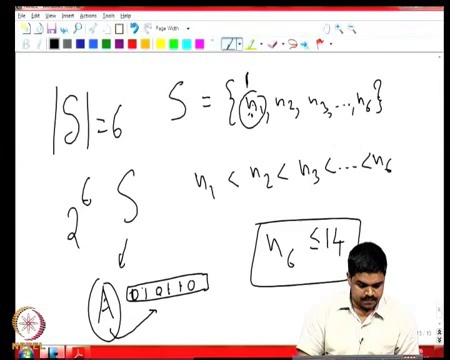 File Edit View Insert Actions Tools Help
Page Width
|S| = 6
S = {n₁, n₂, n₃, ..., n₆}
1
n₁ < n₂ < n₃ < ... < n₆
2⁶ S
n₆ ≤ 14
A
010110
NPTEL